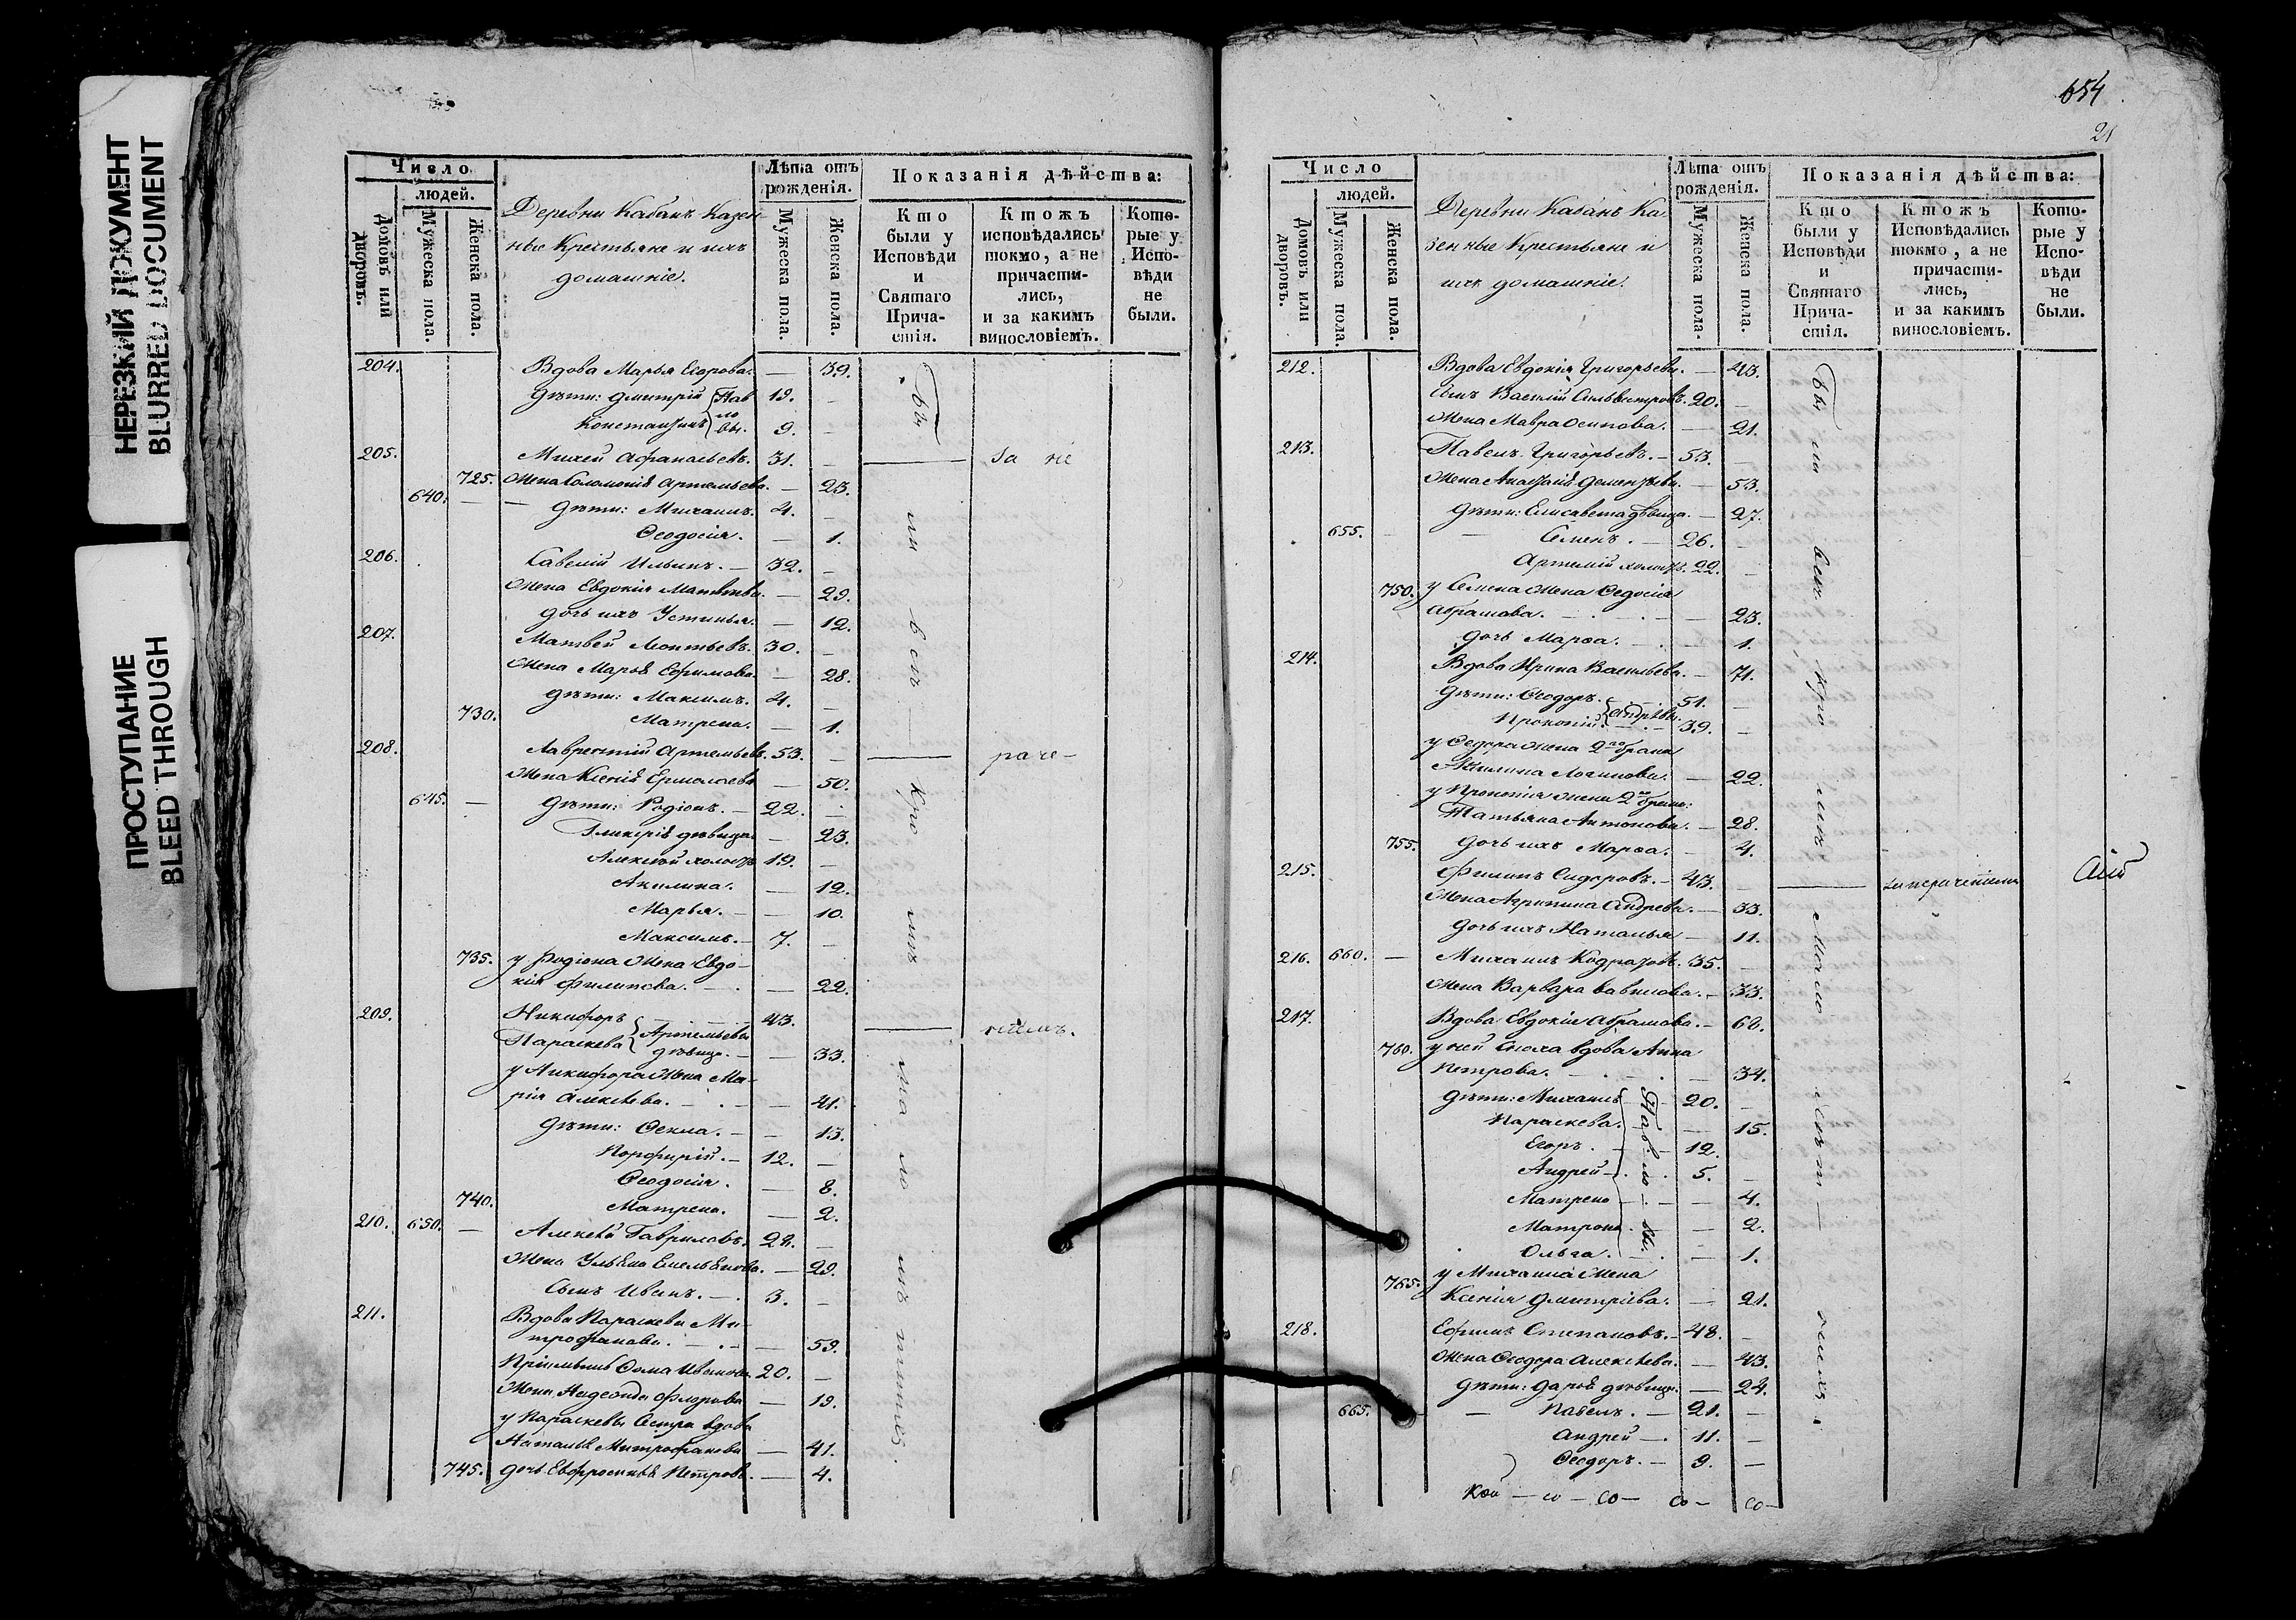 НЕРЕЗКИЙ ДОКУМЕНТ
BLURRED DOCUMENT
ПРОСТУПАНИЕ
BLEED THROUGH
Число
людей.
Домовъ или дворовъ.
Мужеска пола.
Женска пола.
Деревни Кабанъ Казен
ные Крестьяне и ихъ
домашніе.
Лѣта отъ рожденія.
Мужеска пола.
Женска пола.
Показанія дѣйства:
Кто были у Исповѣди и Святаго Причастія.
Ктожъ исповѣдались токмо, а не причастились, и за какимъ винословіемъ.
Которые у Исповѣди не были.
204. Вдова Марья Егорова. — 39.
Дѣти: Дмитрій 19. —
Павловы.
Константинъ 9. —
205. Михей Афанасьевъ. 31. — за не
725. Жена Соломонія Артемьева. — 23.
640. — Дѣти: Михаилъ. 4. —
Ѳеодосія. — 1.
206. Савелій Ильинъ. — 32. —
Жена Евдокія Матвѣева. — 29.
дочь ихъ Устинья. — 12.
207. Матвей Леонтьевъ. 30. —
Жена Марья Ефимова. — 28.
Дѣти: Максимъ. 4. —
730. Матрена. — 1.
208. Лаврентій Артемьевъ. 53. — раче-
Жена Ксенія Ермолаева — 50.
645. — Дѣти: Родіонъ. — 22. —
Гликерія дѣвица — 23.
Алексѣй холостъ 19. —
Акилина. — 12.
Марья. — 10.
Максимъ. — 7. —
735. у Родіона Жена Евдо-
кія Филипова. — 22.
209. Никифоръ 43.
Параскева Артемьевы дѣвица. — 33. ніемъ.
у Никифора Жена Ма-
рія Алексѣева. — 41.
Дѣти: Ѳекла. — 13.
Порфирій. — 12. —
Ѳеодосія. — 8.
740. Матрена. — 2.
210. 650. — Алексѣй Гавриловъ. 28. —
Жена Ульяна Емельянова. — 29.
Сынъ Иванъ. — 3. —
211. Вдова Параскева Ми-
трофанова. — 59.
Пріемышъ Ѳома Ивановъ 20. —
Жена Надежда Флорова — 19.
у Параскевы Сестра вдова
Наталья Митрофанова — 41.
745. дочь Евфросинья Петрова. — 4.
Бы ли всѣ кро мѣ ма ло лѣ тныхъ.
654
21
Число
людей.
Домовъ или дворовъ.
Мужеска пола.
Женска пола.
Деревни Кабанъ Ка
зенные Крестьяне и
ихъ домашніе.
Лѣта отъ рожденія.
Мужеска пола.
Женска пола.
Показанія дѣйства:
Кто были у Исповѣди и Святаго Причастія.
Ктожъ Исповѣдались токмо, а не причастились, и за какимъ винословіемъ.
Которые у Исповѣди не были.
212. Вдова Евдокія Григорьева. — 43.
сынъ Василій Сильвестровъ. 20. —
Жена Мавра Осипова. — 21.
213. Павелъ Григорьевъ. — 53. —
Жена Анастасія Дементьева. — 53.
Дѣти: Елисавета дѣвица. — 27.
655. — Семенъ. — 26. —
Артемій холостъ. 22. —
750. у Семена Жена Ѳедосія
Абрамова. — 23.
дочь Марѳа. — 1.
214. Вдова Ирина Васильева. — 71.
Дѣти: Ѳеодоръ. 51. —
Андреевы.
Прокопій. 39. —
у Ѳедора Жена 2го брака
Акилина Логинова. — 22.
у Прокопія жена 2го брака:
Татьяна Антонова. — 28.
755. дочь ихъ Марѳа. — 4.
215. Филипъ Сидоровъ. — 43. — за нераченіемъ
Жена Агрипина Андреева. — 33.
дочь ихъ Наталья — 11.
216. 660. — Михаилъ Кодратовъ. 35. —
Жена Варвара Вавилова. — 33.
217. Вдова Евдокія Абрамова. — 68.
760. у ней сноха вдова Анна
Петрова. — 34.
Дѣти: Михаилъ 20. —
Параскева. — 15.
Егоръ. 12.
Андрей. 5. —
Матрена — 4.
Матрона. — 2.
Ольга. — 1.
Павловы.
765. у Михаила Жена
Ксенія Дмитріева. — 21.
218. Ефимъ Степановъ. — 48. —
Жена Ѳеодора Алексѣева. — 43.
Дѣти: Дарья дѣвица. — 24.
665. — Павелъ. — 21. —
Андрей — 11. —
Ѳеодоръ. — 9. —
Бы ли всѣ, кро мѣ Мало лѣт — нихъ.